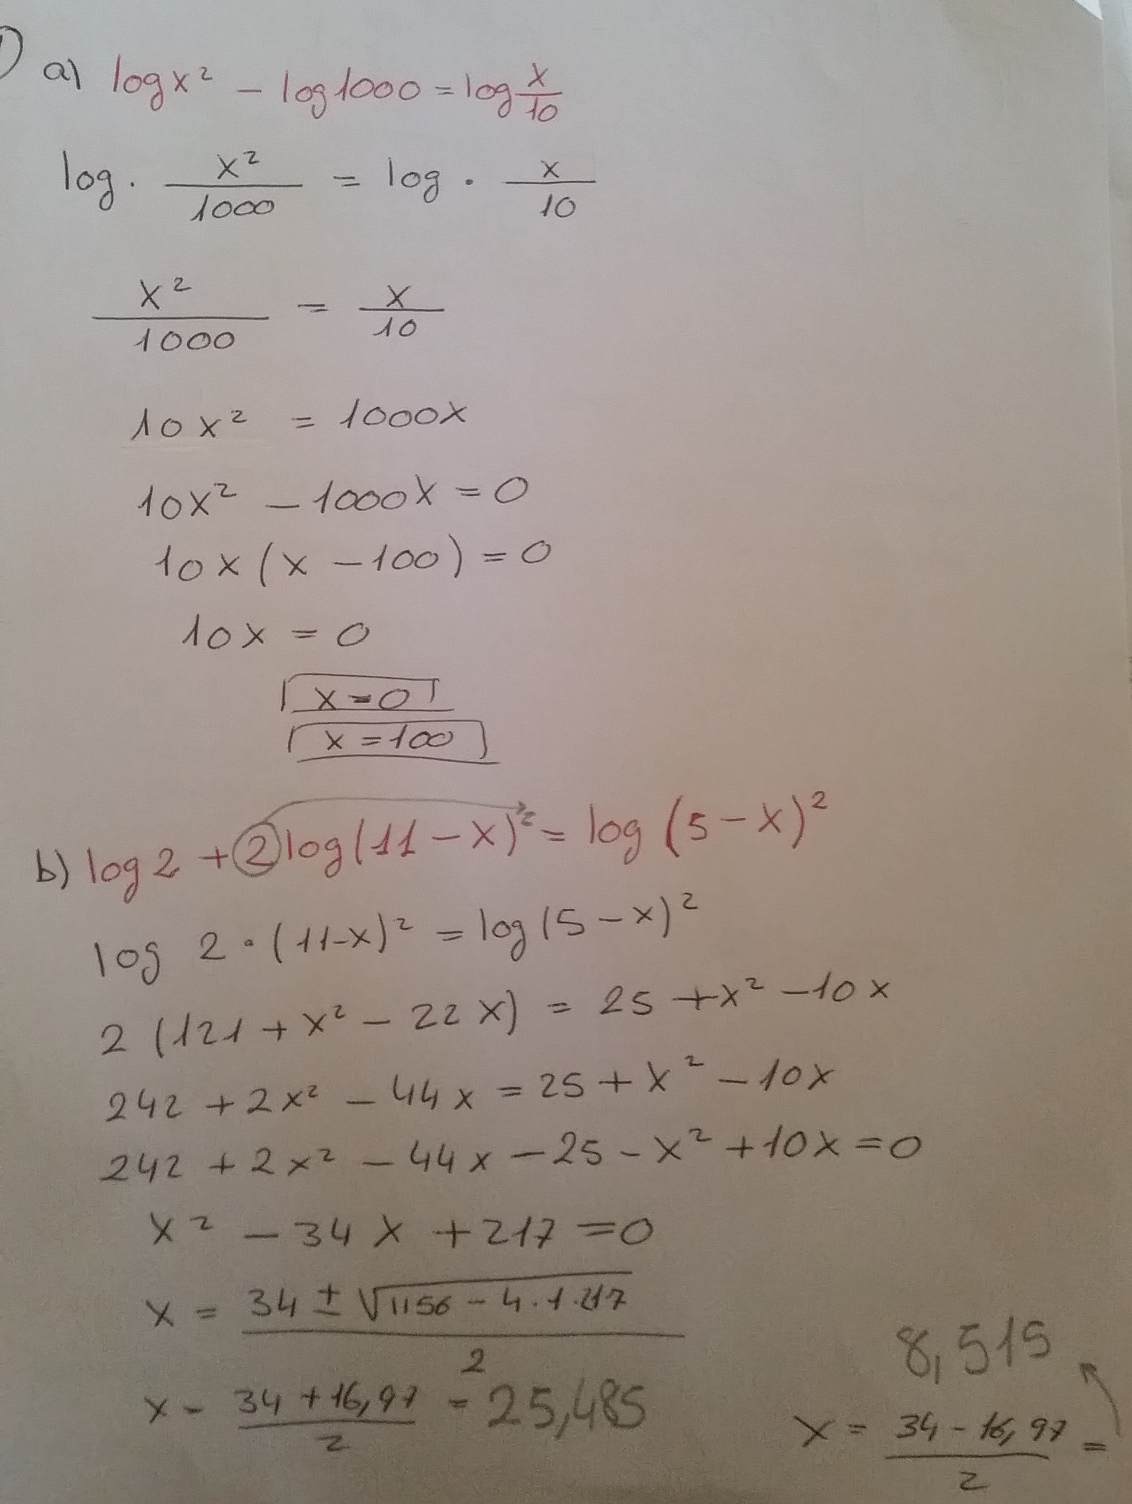 1) a) log x² - log 1000 = log x/10
log · x²/1000 = log · x/10
x²/1000 = x/10
10x² = 1000x
10x² - 1000x = 0
10x (x - 100) = 0
10x = 0
x = 0
x = 100
b) log 2 + 2 log (11 - x)² = log (5 - x)²
log 2 · (11-x)² = log (5 - x)²
2 (121 + x² - 22x) = 25 + x² - 10x
242 + 2x² - 44x = 25 + x² - 10x
242 + 2x² - 44x - 25 - x² + 10x = 0
x² - 34x + 217 = 0
x = (34 ± √(1156 - 4·1·217))/2
x - (34 + 16,97)/2 = 25,485
x = (34 - 16,97)/2 =
8,515